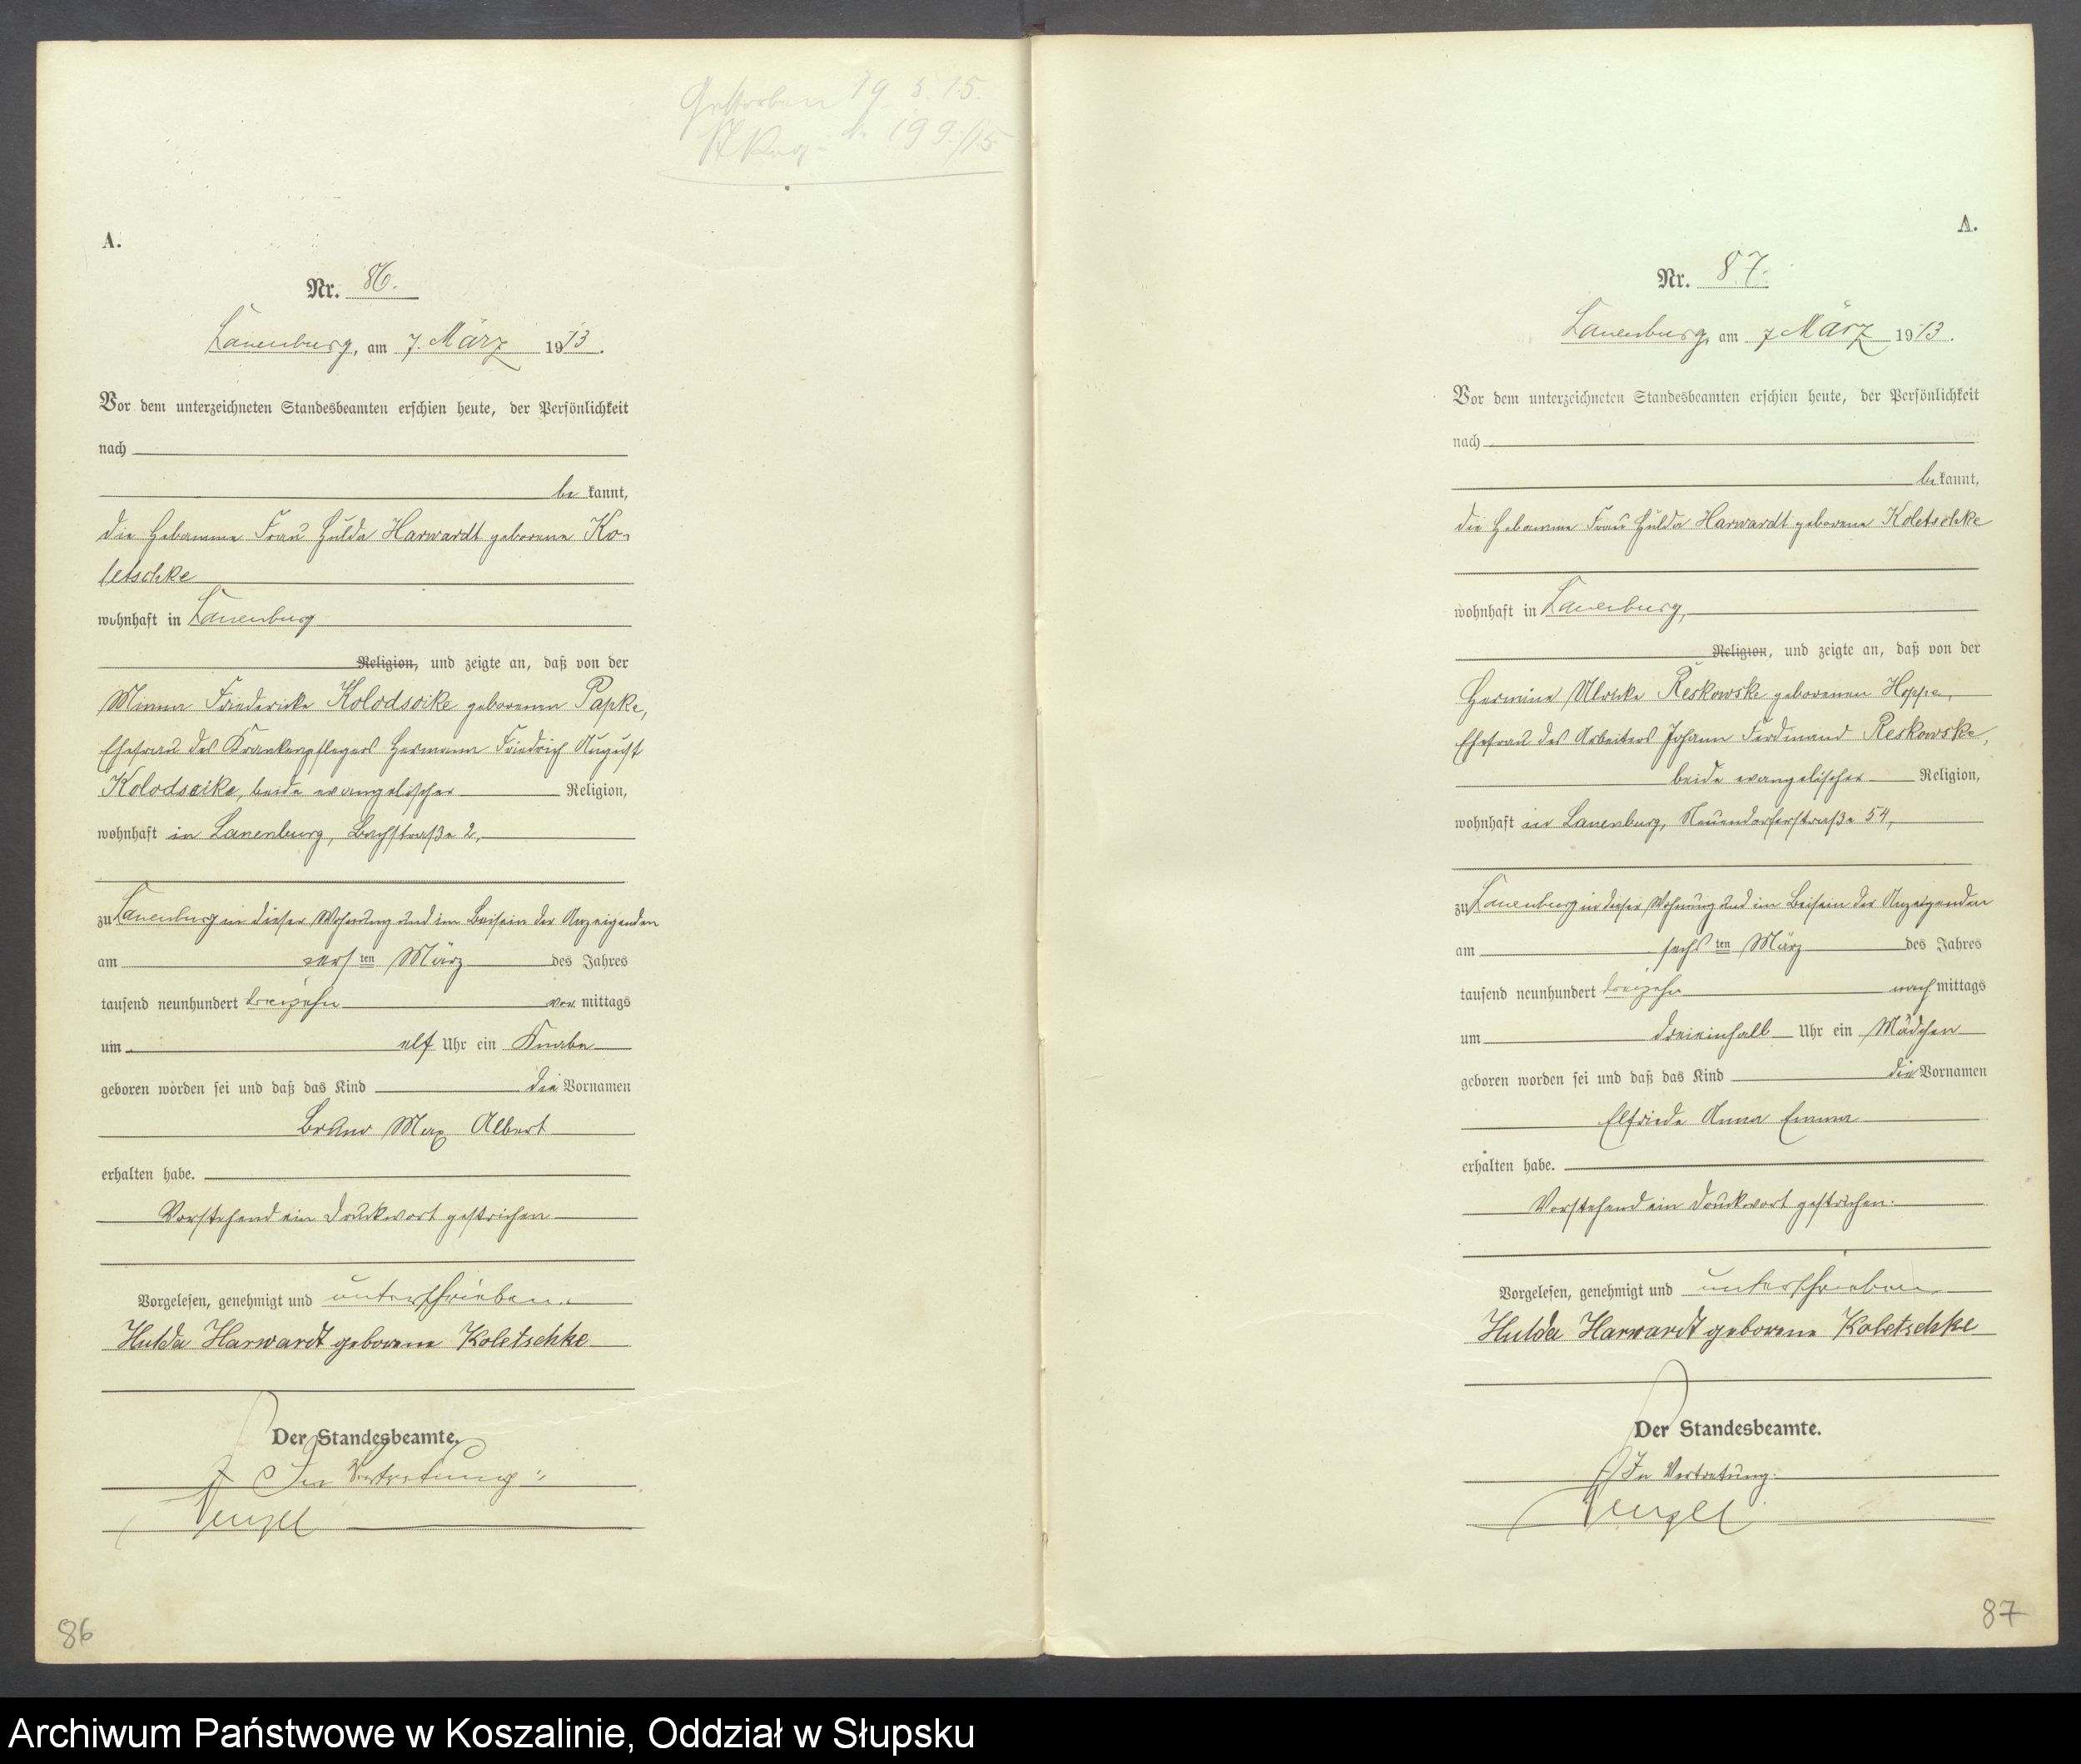 Gestorben 19. 5. 15.
St. Reg. 199/15
A.
Nr. 86.
Lauenburg, am 7. März 1913.
Vor dem unterzeichneten Standesbeamten erschien heute, der Persönlichkeit
nach
be kannt,
die Hebamme Frau Hulda Harwardt geborene Ko-
letschke
wohnhaft in Lauenburg
Religion, und zeigte an, daß von der
Minna Friedericke Kolodsoike geborenen Papke,
Ehefrau des Krankenpflegers Hermann Friedrich August
Kolodsoike, beide evangelischer Religion,
wohnhaft in Lauenburg, Bachstraße 2,
zu Lauenburg in dieser Wohnung und im Beisein der Anzeigenden
am ten März des Jahres
tausend neunhundert dreizehn vor mittags
um elf Uhr ein Knabe
geboren worden sei und daß das Kind die Vornamen
Bruno Max Albert
erhalten habe.
Vorstehend ein Druckwort gestrichen
Vorgelesen, genehmigt und unterschrieben.
Hulda Harwardt geborene Koletschke
Der Standesbeamte.
In Vertretung:
86
A.
Nr. 87.
Lauenburg, am 7. März 1913.
Vor dem unterzeichneten Standesbeamten erschien heute, der Persönlichkeit
nach
be kannt,
die Hebamme Frau Hulda Harwardt geborene Koletschke
wohnhaft in Lauenburg,
Religion, und zeigte an, daß von der
Hermine Ulrike Reskowske geborenen Hoppe,
Ehefrau des Arbeiters Johann Ferdinand Reskowske,
beide evangelischer Religion,
wohnhaft in Lauenburg, Neuendorferstraße 54,
zu Lauenburg in dieser Wohnung und im Beisein der Anzeigenden
am sechsten März des Jahres
tausend neunhundert dreizehn nach mittags
um dreieinhalb Uhr ein Mädchen
geboren worden sei und daß das Kind die Vornamen
Elfriede Anna Emma
erhalten habe.
Vorstehend ein Druckwort gestrichen.
Vorgelesen, genehmigt und unterschrieben
Hulda Harwardt geborene Koletschke
Der Standesbeamte.
In Vertretung.
87
Archiwum Państwowe w Koszalinie, Oddział w Słupsku